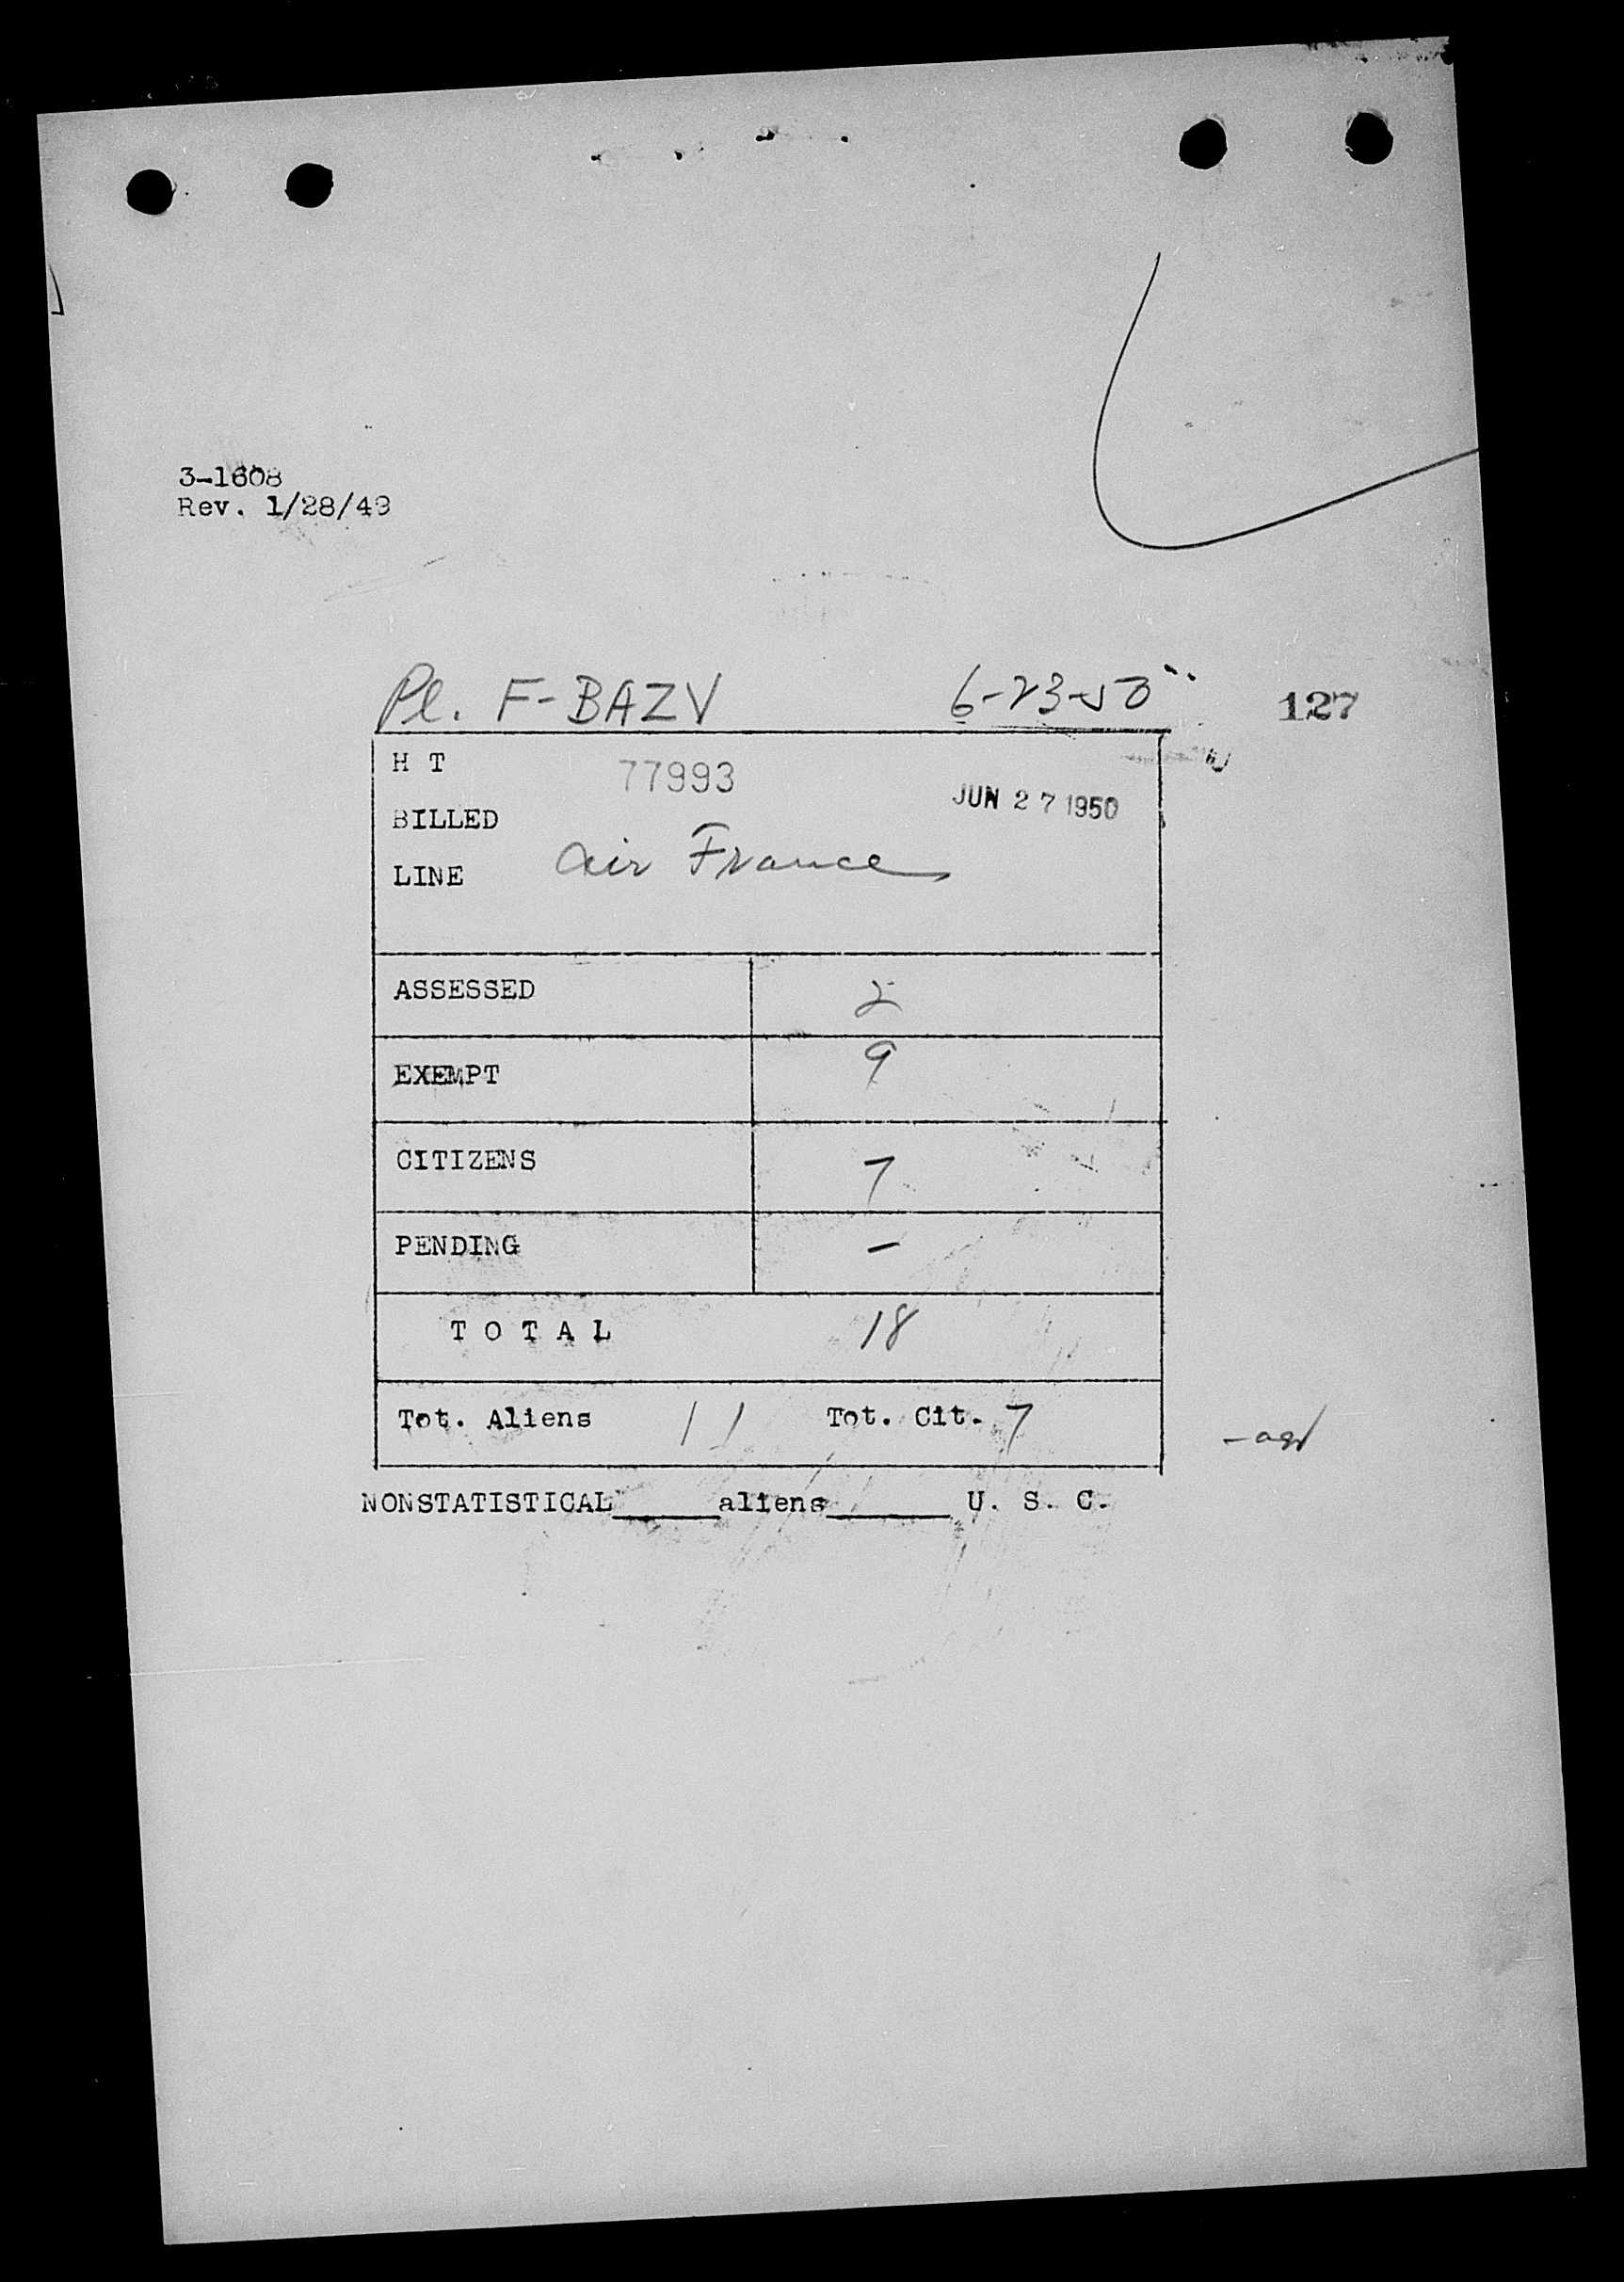 3-1608
Rev. 1/28/49
Pl. F-BAZV 6-23-50 127
H T 77993
JUN 27 1950
BILLED
LINE Air France
ASSESSED 2
EXEMPT 9
CITIZENS 7
PENDING -
TOTAL 18
Tot. Aliens 11 Tot. Cit. 7
NONSTATISTICAL_____aliens______U. S. C.